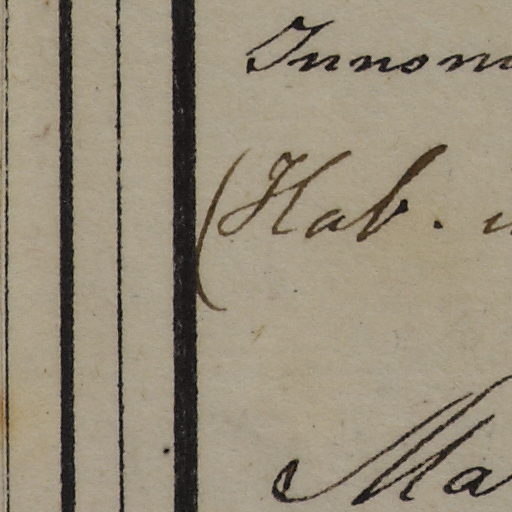 Innom
(Hab.
Ma